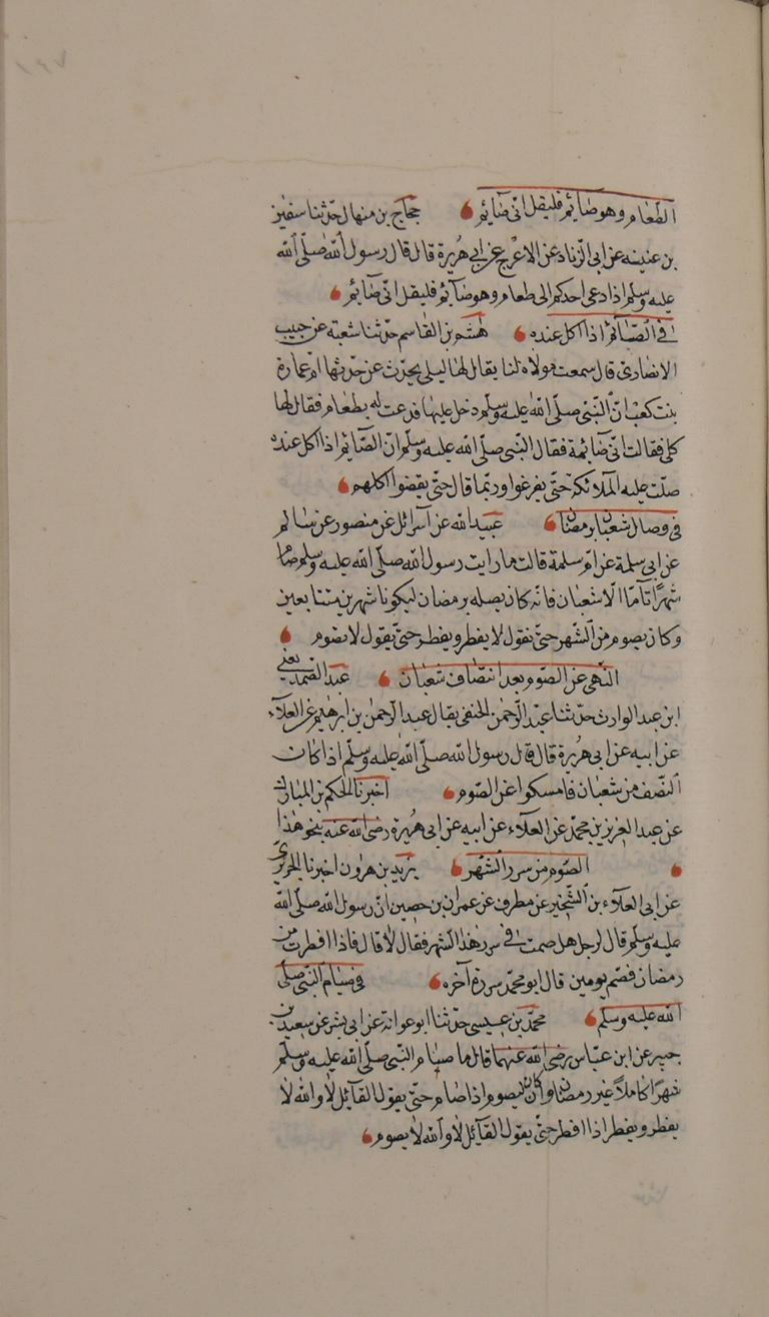 الطعام وهو صائم فليقل انى صائم حجاج بن منهال حدثنا سفين
بن عيينه عن ابى الزناد عن الاعرج عن ابى هريرة قال قال رسول الله صلى الله
عليه وسلم اذا دعى احدكم الى طعام وهو صايم فليقل انى صائم
فى الصائم اذا اكل عنده هشم بن القاسم حدثنا شعبة عن حبيب
الانصارى قال سمعت مولاه لنا يقال لها ليلى يحدث عن حدثها ام عمارة
بنت كعب ان النبى صلى الله عليه وسلم دخل عليها فدعت له بطعام فقال لها
كلى فقالت انى صائمة فقال النبى صلى الله عليه وسلم ان الصائم اذا اكل عنده
صلت عليه الملائكة حتى يفرغوا وربما قال حتى يقضوا اكلهم
فى وصال شعبان برمضان عبيد الله عن اسرائل عن منصور عن سالم
عن ابى سلمة عن ام سلمة قالت ما رايت رسول الله صلى الله عليه وسلم صام
شهرا تاما الا شعبان فانه كان يصله برمضان ليكونا شهرين متتابعين
وكان يصوم من الشهر حتى نقول لا يفطر ويفطر حتى يقول لا يصوم
النهى عن الصوم بعد انتصاف شعبان عبد الصمد يعنى
ابن عبد الوارث حدثنا عبد الرحمن الحنفى يقال عبد الرحمن بن ابرهيم عن العلاء
عن ابيه عن ابى هريرة قال قال رسول الله صلى الله عليه وسلم اذا كان
النصف من شعبان فامسكوا عن الصوم اخبرنا الحكم بن المبارك
عن عبد العزيز بن محمد عن العلاء عن ابيه عن ابى هريرة رضى الله عنه بنحو هذا
الصوم من سرر الشهر يزيد بن هرون اخبرنا الجريرى
عن ابى العلاء بن الشخير عن مطرف عن عمران بن حصين ان رسول الله صلى الله
عليه وسلم قال لرجل هل صمت فى سرر هذا الشهر فقال لا قال فاذا افطرت من
رمضان فصم يومين قال ابو محمد سرره آخره فى صيام النبى صلى
الله عليه وسلم محمد بن عيسى حدثنا ابو عوانة عن ابى بشر عن سعيد بن
جبير عن ابن عباس رضى الله عنهما قال ما صام النبى صلى الله عليه وسلم
شهرا كاملا غير رمضان وان كان ليصوم اذا صام حتى يقول القائل لا والله لا
يفطر ويفطر اذا افطر حتى يقول القائل لا والله لا يصوم